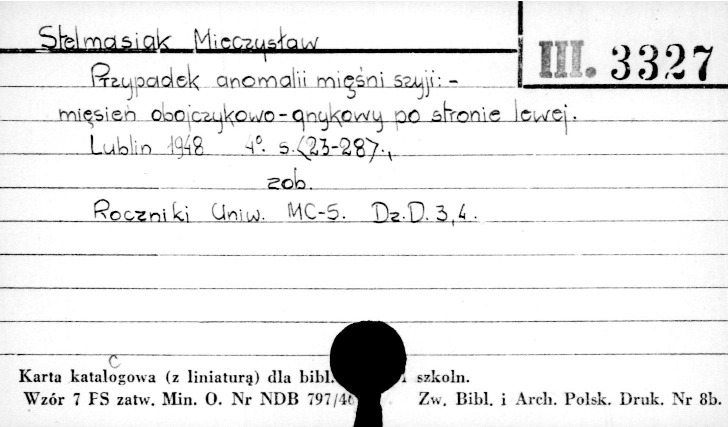 Stelmasiak Mieczysław
III. 3327
Przypadek anomalii mięśni szyji: -
mięsień obojczykowo-gnykowy po stronie lewej.
Lublin 1948 4°. s. <23-28>.,
zob.
Roczniki Uniw. MC-S. Dz. D. 3,4.
c
Karta katalogowa (z liniaturą) dla bibl. szkoln.
Wzór 7 FS zatw. Min. O. Nr NDB 797/46 Zw. Bibl. i Arch. Polsk. Druk. Nr 8b.